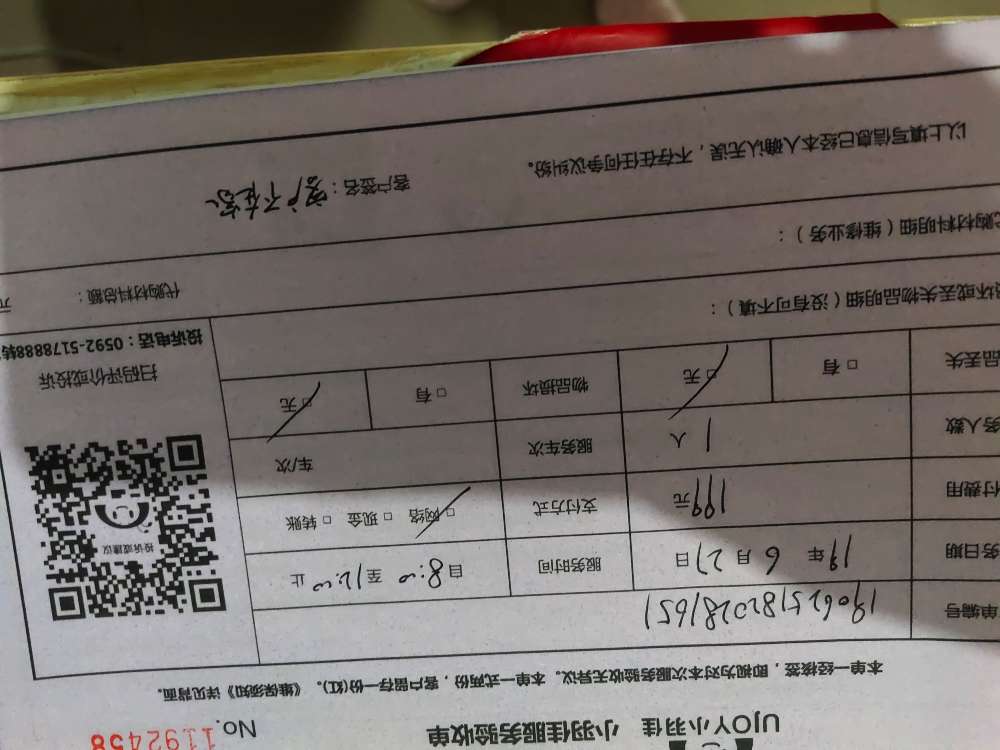 UJOY小羽佳 小羽佳服务验收单 No. 1192458
本单一经核签，即视为对本次服务验收无异议。本单一式两份，客户留存一份(红)。《维保须知》详见背面。
单编号 1906251820281651
务日期 19年 6月27日 服务时间 自8:00至12:00止
付费用 199元 支付方式 □网络 □现金 □转账
务人数 1人 服务车次 车/次
品丢失 □有 □无 物品损坏 □有 □无
投诉或建议
扫码评价或投诉
投诉电话：0592-5178888转
坏或丢失物品明细（没有可不填）：
代购材料总额： 元
代购材料明细（维修业务）：
以上填写信息已经本人确认无误，不存在任何争议纠纷。
客户签名：客户不在家